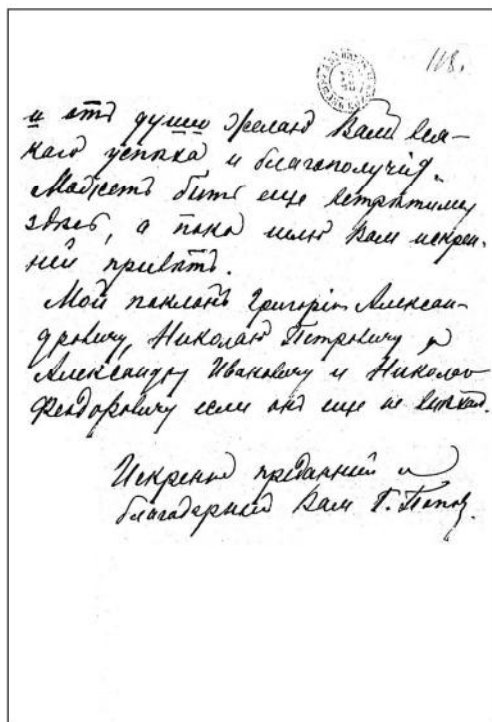 118.
и отъ души желаю Вамъ вся-
каго успѣха и благополучия.
Можетъ быть еще встрѣтимся
здѣсь, а пока шлю Вам искрен-
ний привѣтъ.
Мой поклонъ Григорію Алексан-
дровичу, Николаю Петровичу и
Александру Ивановичу и Николаю
Феодоровичу если онъ еще не выѣхал.
Искренно преданний и
благодарный Вам Г. Попов.